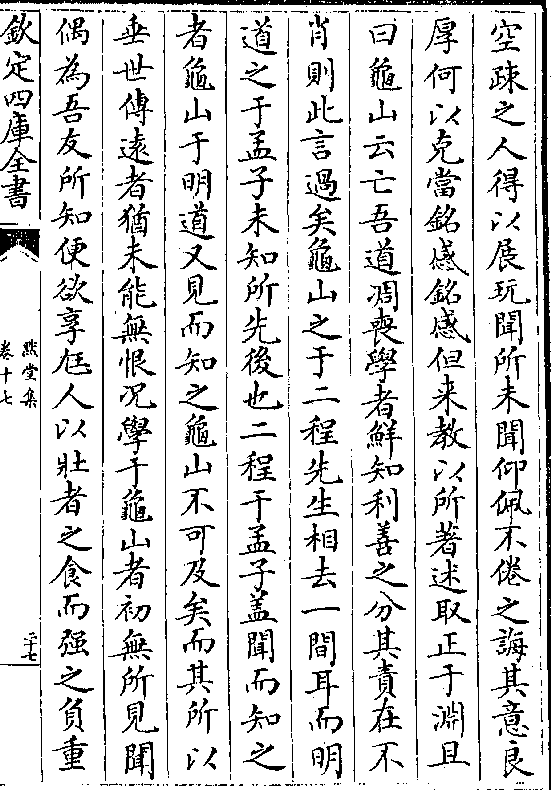 空疎之人得以展玩聞所未聞仰佩不倦之誨其意良
厚何以克當銘感銘感但来教以所著述取正于淵且
曰龜山云亡吾道凋喪學者鮮知利善之分其責在不
肖則此言過矣龜山之于二程先生相去一間耳而明
道之于孟子未知所先後也二程于孟子盖聞而知之
者龜山于明道又見而知之龜山不可及矣而其所以
垂世傳逺者猶未能無恨况學于龜山者初無所見聞
偶為吾友所知便欲享尫人以壯者之食而强之負重
欽定四庫全書
黙堂集
卷十七
二十七